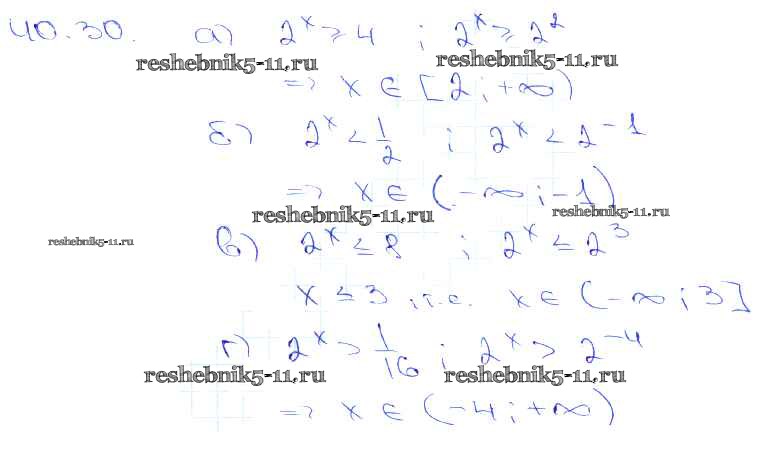 40.30. а) 2^x ≥ 4 ; 2^x ≥ 2^2
reshebnik5-11.ru reshebnik5-11.ru
=> x ∈ [2 ; +∞)
б) 2^x < 1/2 ; 2^x < 2^-1
=> x ∈ (-∞ ; -1)
reshebnik5-11.ru reshebnik5-11.ru
reshebnik5-11.ru в) 2^x ≤ 8 ; 2^x ≤ 2^3
x ≤ 3 , т.е. x ∈ (-∞ ; 3]
г) 2^x > 1/16 ; 2^x > 2^-4
reshebnik5-11.ru reshebnik5-11.ru
=> x ∈ (-4 ; +∞)